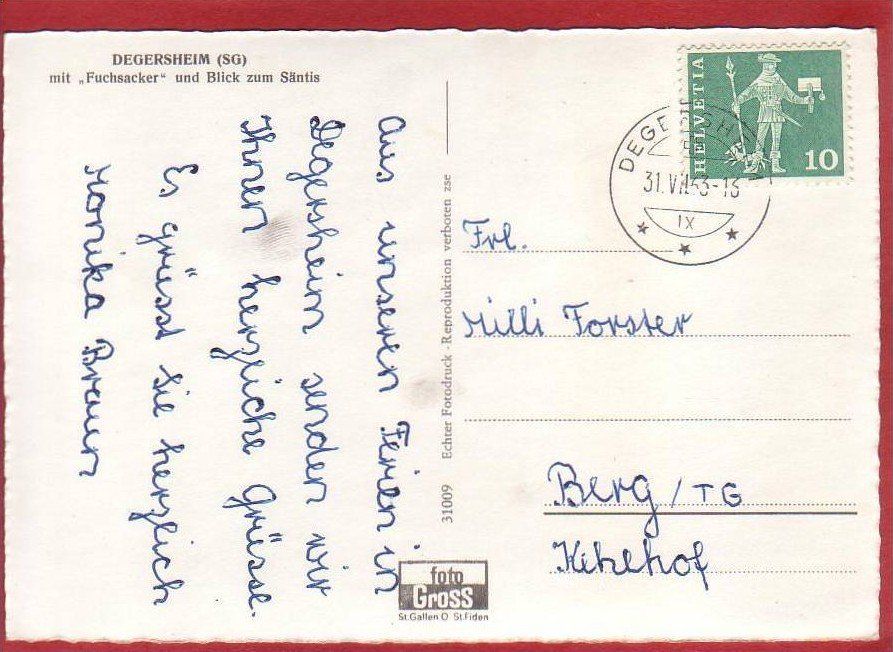 DEGERSHEIM (SG)
mit „Fuchsacker“ und Blick zum Säntis
Aus unseren Ferien in
Degersheim senden wir
Ihnen herzliche Grüsse.
Es grüsst Sie herzlich
Monika Braun
31009 Echter Fotodruck - Reproduktion verboten zse
foto
Gross
St.Gallen O St.Fiden
HELVETIA
10
DEGERSH
31.VII.63-13
IX
Frl.
Milli Forster
Berg / TG
Kehlhof